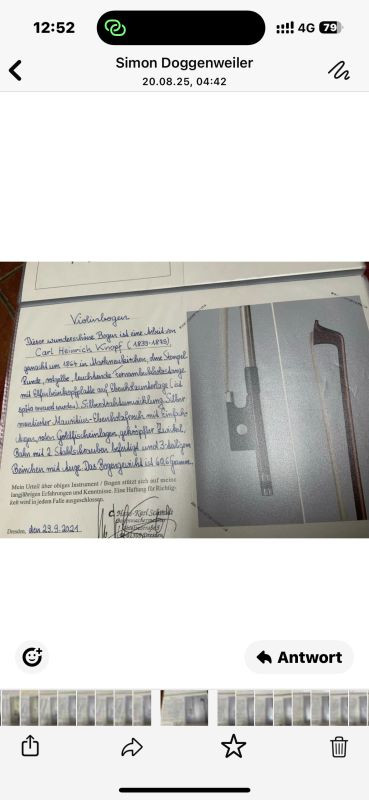 12:52
4G 79
Simon Doggenweiler
20.08.25, 04:42
Violinbogen
Dieser wunderschöne Bogen ist eine Arbeit von
Carl Heinrich Knopf (1839-1875)
gemacht um 1864 in Markneukirchen, ohne Stempel
Runde, rotgelbe leuchtende Fernambukholzstange
mit Elfenbeinkopfplatte auf Ebenholzunterlage (ist
später erneuert worden). Silberdrahtumwicklung. Silber
montierter Mauritius-Ebenholzfrosch mit Einfach-
Augen, roten Goldfischeinlagen, gekröpfter Zwickel,
Bahn mit 2 Stahlschrauben befestigt und 3-teiligem
Beinchen mit Auge. Das Bogengewicht ist 60,6 Gramm.
Mein Urteil über obiges Instrument / Bogen stützt sich auf meine
langjährigen Erfahrungen und Kenntnisse. Eine Haftung für Richtig-
keit wird in jedem Falle ausgeschlossen.
Dresden, den 29.9.2021
Antwort